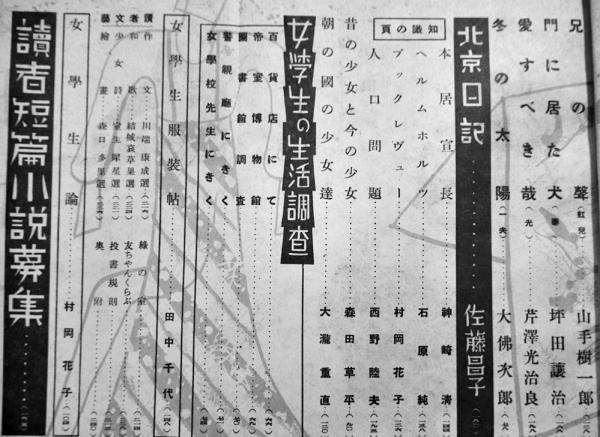 兄の聲(虹兒)……山手樹一郎
門に居た犬……坪田讓治
愛すべき哉(光)……芹澤光治良
冬の太陽(一夫)……大佛次郎
北京日記……佐藤昌子
知識の頁
本居宣長……神崎清
ヘルムホルツ……石原純
ブックレヴュー……村岡花子
人口問題……西野陸夫
昔の少女と今の少女……森田草平
朝の國の少女達……大瀧重直
女学生の生活調査
百貨店にて
帝室博物館
圖書館調査
警視廳にきく
女學校先生にきく
女學生服裝帖……田中千代
讀者文藝
作文……川端康成選
和歌……結城哀草果選
少女詩……室生犀星選
繪畫……森口多里選
綠の室
友ちやんくらぶ
投書規則
奥附
女學生論……村岡花子
讀者短篇小説募集